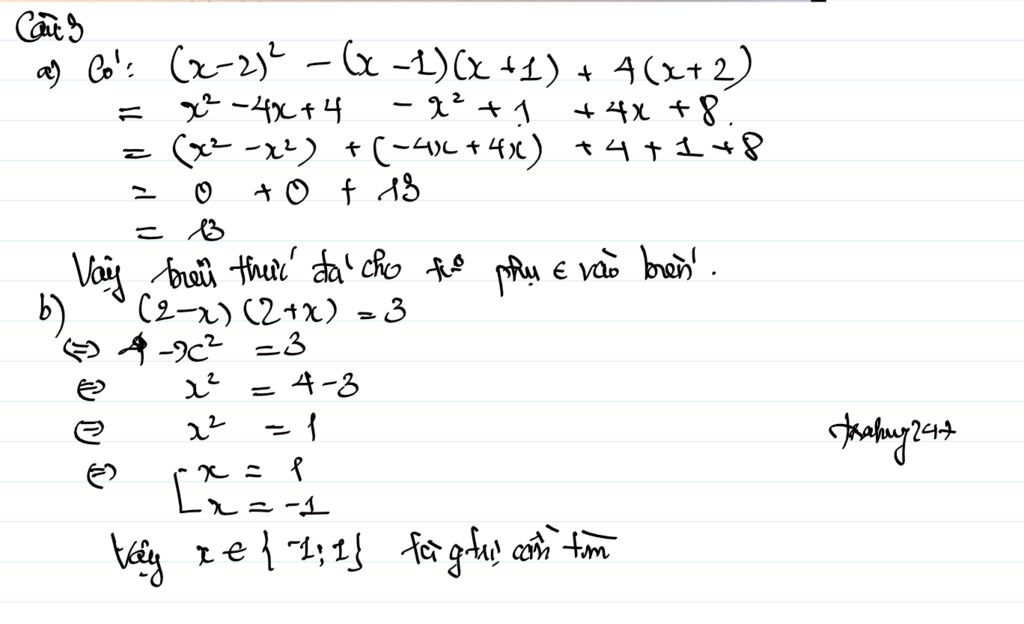 Câu 3
a) Có: (x-2)² - (x-1)(x+1) + 4(x+2)
= x² - 4x + 4 - x² + 1 + 4x + 8.
= (x² - x²) + (-4x + 4x) + 4 + 1 + 8
= 0 + 0 + 13
= 13
Vậy biểu thức đã cho phụ ∈ vào biến.
b) (2-x)(2+x) = 3
⇔ 4 - x² = 3
⇔ x² = 4 - 3
⇔ x² = 1
⇔ [ x = 1
x = -1
Vậy x ∈ {-1; 1} là cần tìm